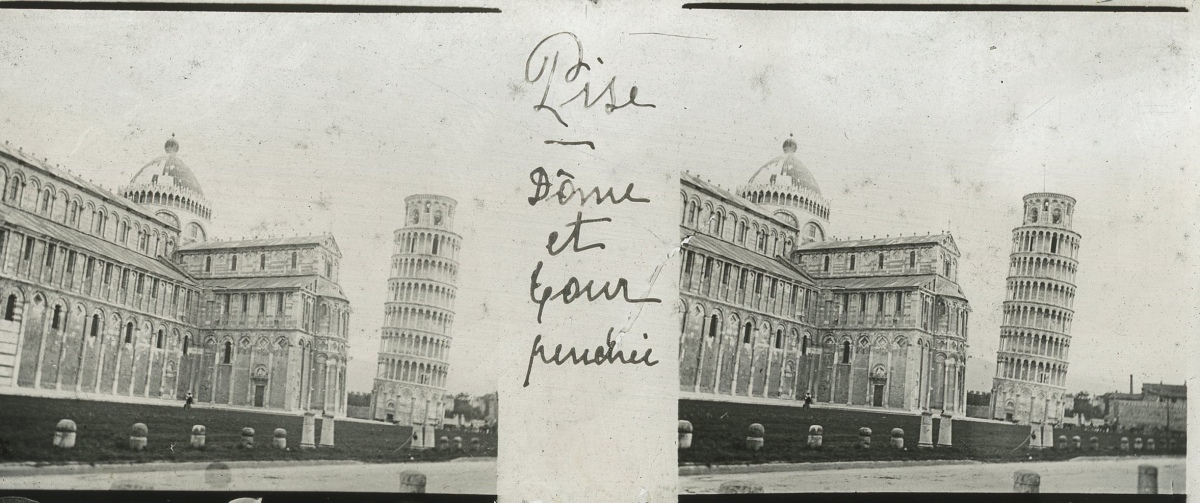 Pise
—
Dôme
et
Tour
penchée